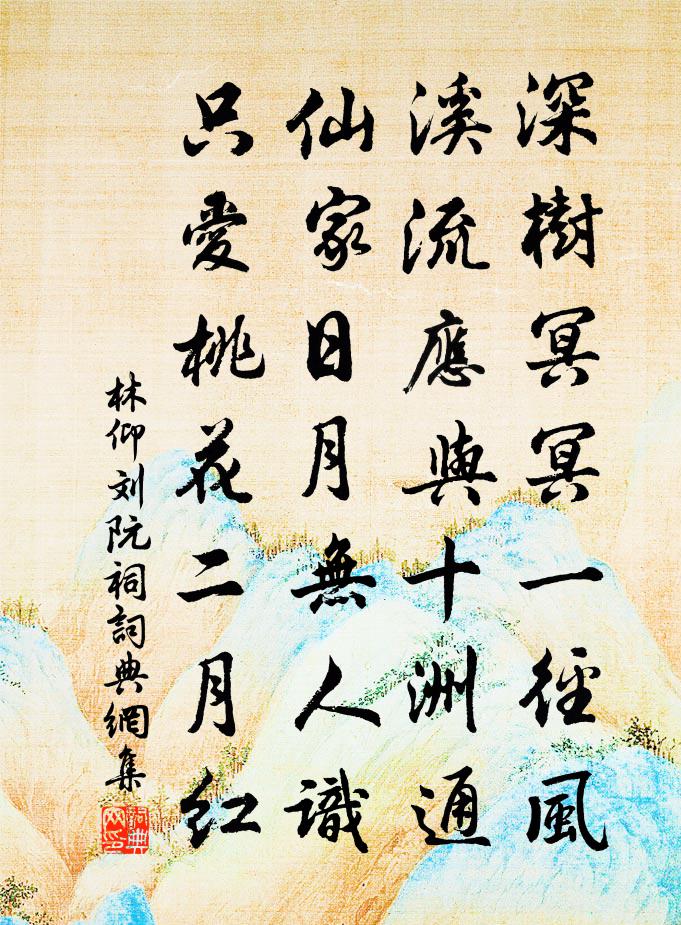 深樹冥冥一徑風
溪流應與十洲通
仙家日月無人識
只愛桃花二月红
林仰刘阮祠詞典網集
詞典网印